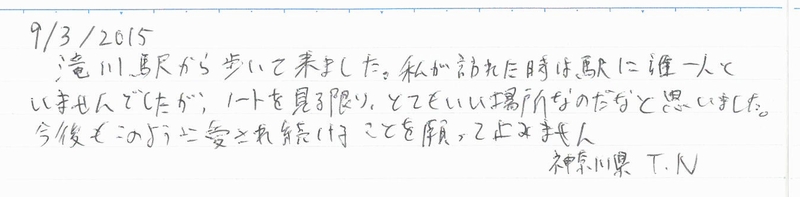 9/3/2015
滝川駅から歩いて来ました。私が訪れた時は駅に誰一人と
いませんでしたが、ノートを見る限り、とてもいい場所なのだなと思いました。
今後もこのように愛され続けることを願って止みません
神奈川県 T.N